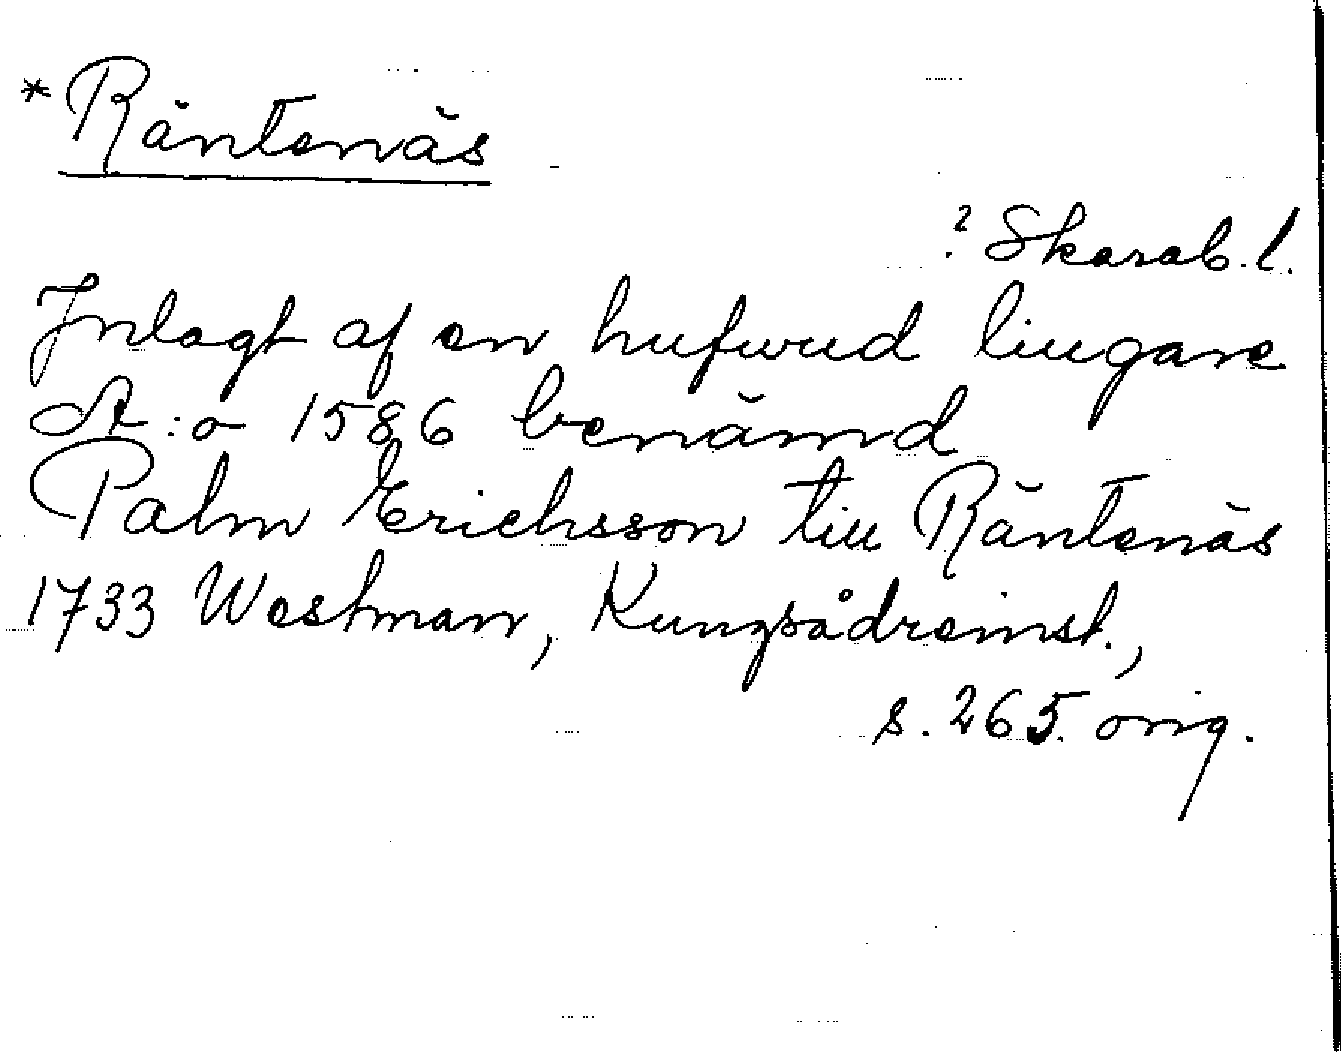 * Räntenäs
? Skarab. l.
Inlagt af en hufwud liugare
A:o 1586 benämd
Palm Erichsson till Räntenäs
1733 Westman, Kungsådreinst.,
s. 265 orig.